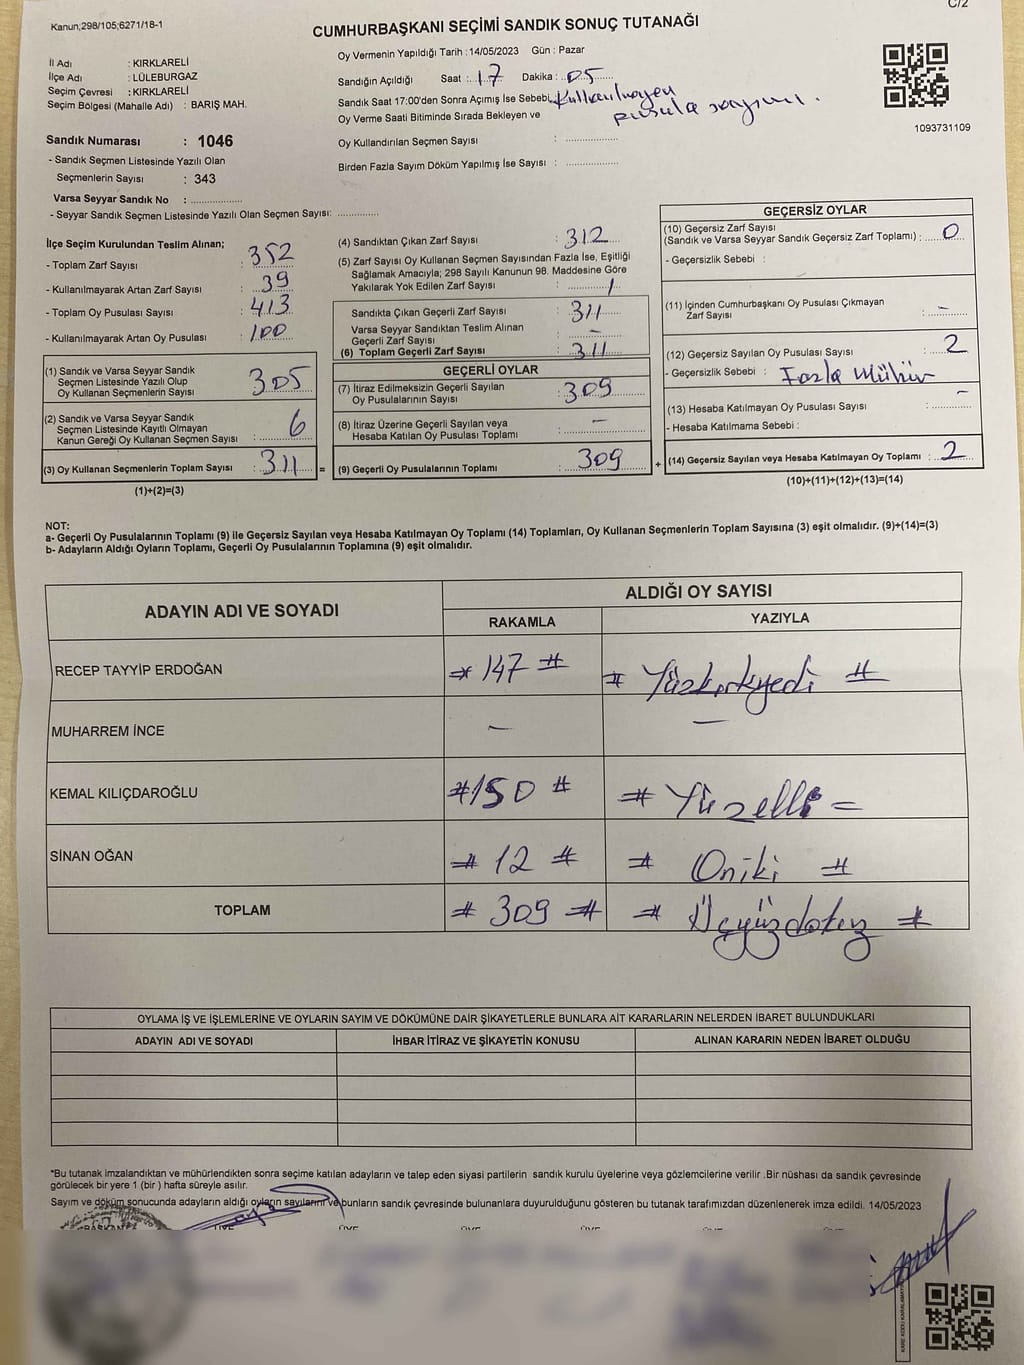 Kanun;298/105;6271/18-1
C/2
CUMHURBAŞKANI SEÇİMİ SANDIK SONUÇ TUTANAĞI
İl Adı : KIRKLARELİ
İlçe Adı : LÜLEBURGAZ
Seçim Çevresi : KIRKLARELİ
Seçim Bölgesi (Mahalle Adı) : BARIŞ MAH.
Sandık Numarası : 1046
- Sandık Seçmen Listesinde Yazılı Olan
Seçmenlerin Sayısı : 343
Varsa Seyyar Sandık No : ....................
- Seyyar Sandık Seçmen Listesinde Yazılı Olan Seçmen Sayısı: ..............
Oy Vermenin Yapıldığı Tarih : 14/05/2023 Gün : Pazar
Sandığın Açıldığı Saat : 17 Dakika : 05
Sandık Saat 17:00'den Sonra Açımış İse Sebebi Kullanılmayan
pusula sayımı.
Oy Verme Saati Bitiminde Sırada Bekleyen ve
Oy Kullandırılan Seçmen Sayısı : ..................
Birden Fazla Sayım Döküm Yapılmış İse Sayısı : ..................
1093731109
İlçe Seçim Kurulundan Teslim Alınan;
- Toplam Zarf Sayısı : 352
- Kullanılmayarak Artan Zarf Sayısı : 39
- Toplam Oy Pusulası Sayısı : 413
- Kullanılmayarak Artan Oy Pusulası : 100
(1) Sandık ve Varsa Seyyar Sandık
Seçmen Listesinde Yazılı Olup
Oy Kullanan Seçmenlerin Sayısı : 305
(2) Sandık ve Varsa Seyyar Sandık
Seçmen Listesinde Kayıtlı Olmayan
Kanun Gereği Oy Kullanan Seçmen Sayısı : 6
(3) Oy Kullanan Seçmenlerin Toplam Sayısı : 311 =
(1)+(2)=(3)
(4) Sandıktan Çıkan Zarf Sayısı : 312
(5) Zarf Sayısı Oy Kullanan Seçmen Sayısından Fazla İse, Eşitliği
Sağlamak Amacıyla; 298 Sayılı Kanunun 98. Maddesine Göre
Yakılarak Yok Edilen Zarf Sayısı : 1
Sandıkta Çıkan Geçerli Zarf Sayısı : 311
Varsa Seyyar Sandıktan Teslim Alınan
Geçerli Zarf Sayısı : -
(6) Toplam Geçerli Zarf Sayısı : 311
GEÇERLİ OYLAR
(7) İtiraz Edilmeksizin Geçerli Sayılan
Oy Pusulalarının Sayısı : 309
(8) İtiraz Üzerine Geçerli Sayılan veya
Hesaba Katılan Oy Pusulası Toplamı : -
(9) Geçerli Oy Pusulalarının Toplamı : 309 +
GEÇERSİZ OYLAR
(10) Geçersiz Zarf Sayısı
(Sandık ve Varsa Seyyar Sandık Geçersiz Zarf Toplamı) : 0
- Geçersizlik Sebebi :
(11) İçinden Cumhurbaşkanı Oy Pusulası Çıkmayan
Zarf Sayısı : -
(12) Geçersiz Sayılan Oy Pusulası Sayısı : 2
- Geçersizlik Sebebi : Fazla Mühür
(13) Hesaba Katılmayan Oy Pusulası Sayısı : -
- Hesaba Katılmama Sebebi :
(14) Geçersiz Sayılan veya Hesaba Katılmayan Oy Toplamı : 2
(10)+(11)+(12)+(13)=(14)
NOT:
a- Geçerli Oy Pusulalarının Toplamı (9) ile Geçersiz Sayılan veya Hesaba Katılmayan Oy Toplamı (14) Toplamları, Oy Kullanan Seçmenlerin Toplam Sayısına (3) eşit olmalıdır. (9)+(14)=(3)
b- Adayların Aldığı Oyların Toplamı, Geçerli Oy Pusulalarının Toplamına (9) eşit olmalıdır.
ADAYIN ADI VE SOYADI
ALDIĞI OY SAYISI
RAKAMLA YAZIYLA
RECEP TAYYİP ERDOĞAN # 147 # # Yüzkırkyedi #
MUHARREM İNCE - -
KEMAL KILIÇDAROĞLU #150 # # Yüzelli =
SİNAN OĞAN # 12 # # Oniki #
TOPLAM # 309 # # Üçyüzdokuz #
OYLAMA İŞ VE İŞLEMLERİNE VE OYLARIN SAYIM VE DÖKÜMÜNE DAİR ŞİKAYETLERLE BUNLARA AİT KARARLARIN NELERDEN İBARET BULUNDUKLARI
ADAYIN ADI VE SOYADI İHBAR İTİRAZ VE ŞİKAYETİN KONUSU ALINAN KARARIN NEDEN İBARET OLDUĞU
*Bu tutanak imzalandıktan ve mühürlendikten sonra seçime katılan adayların ve talep eden siyasi partilerin sandık kurulu üyelerine veya gözlemcilerine verilir .Bir nüshası da sandık çevresinde
görülecek bir yere 1 (bir ) hafta süreyle asılır.
Sayım ve döküm sonucunda adayların aldığı oyların sayılarını ve bunların sandık çevresinde bulunanlara duyurulduğunu gösteren bu tutanak tarafımızdan düzenlenerek imza edildi. 14/05/2023